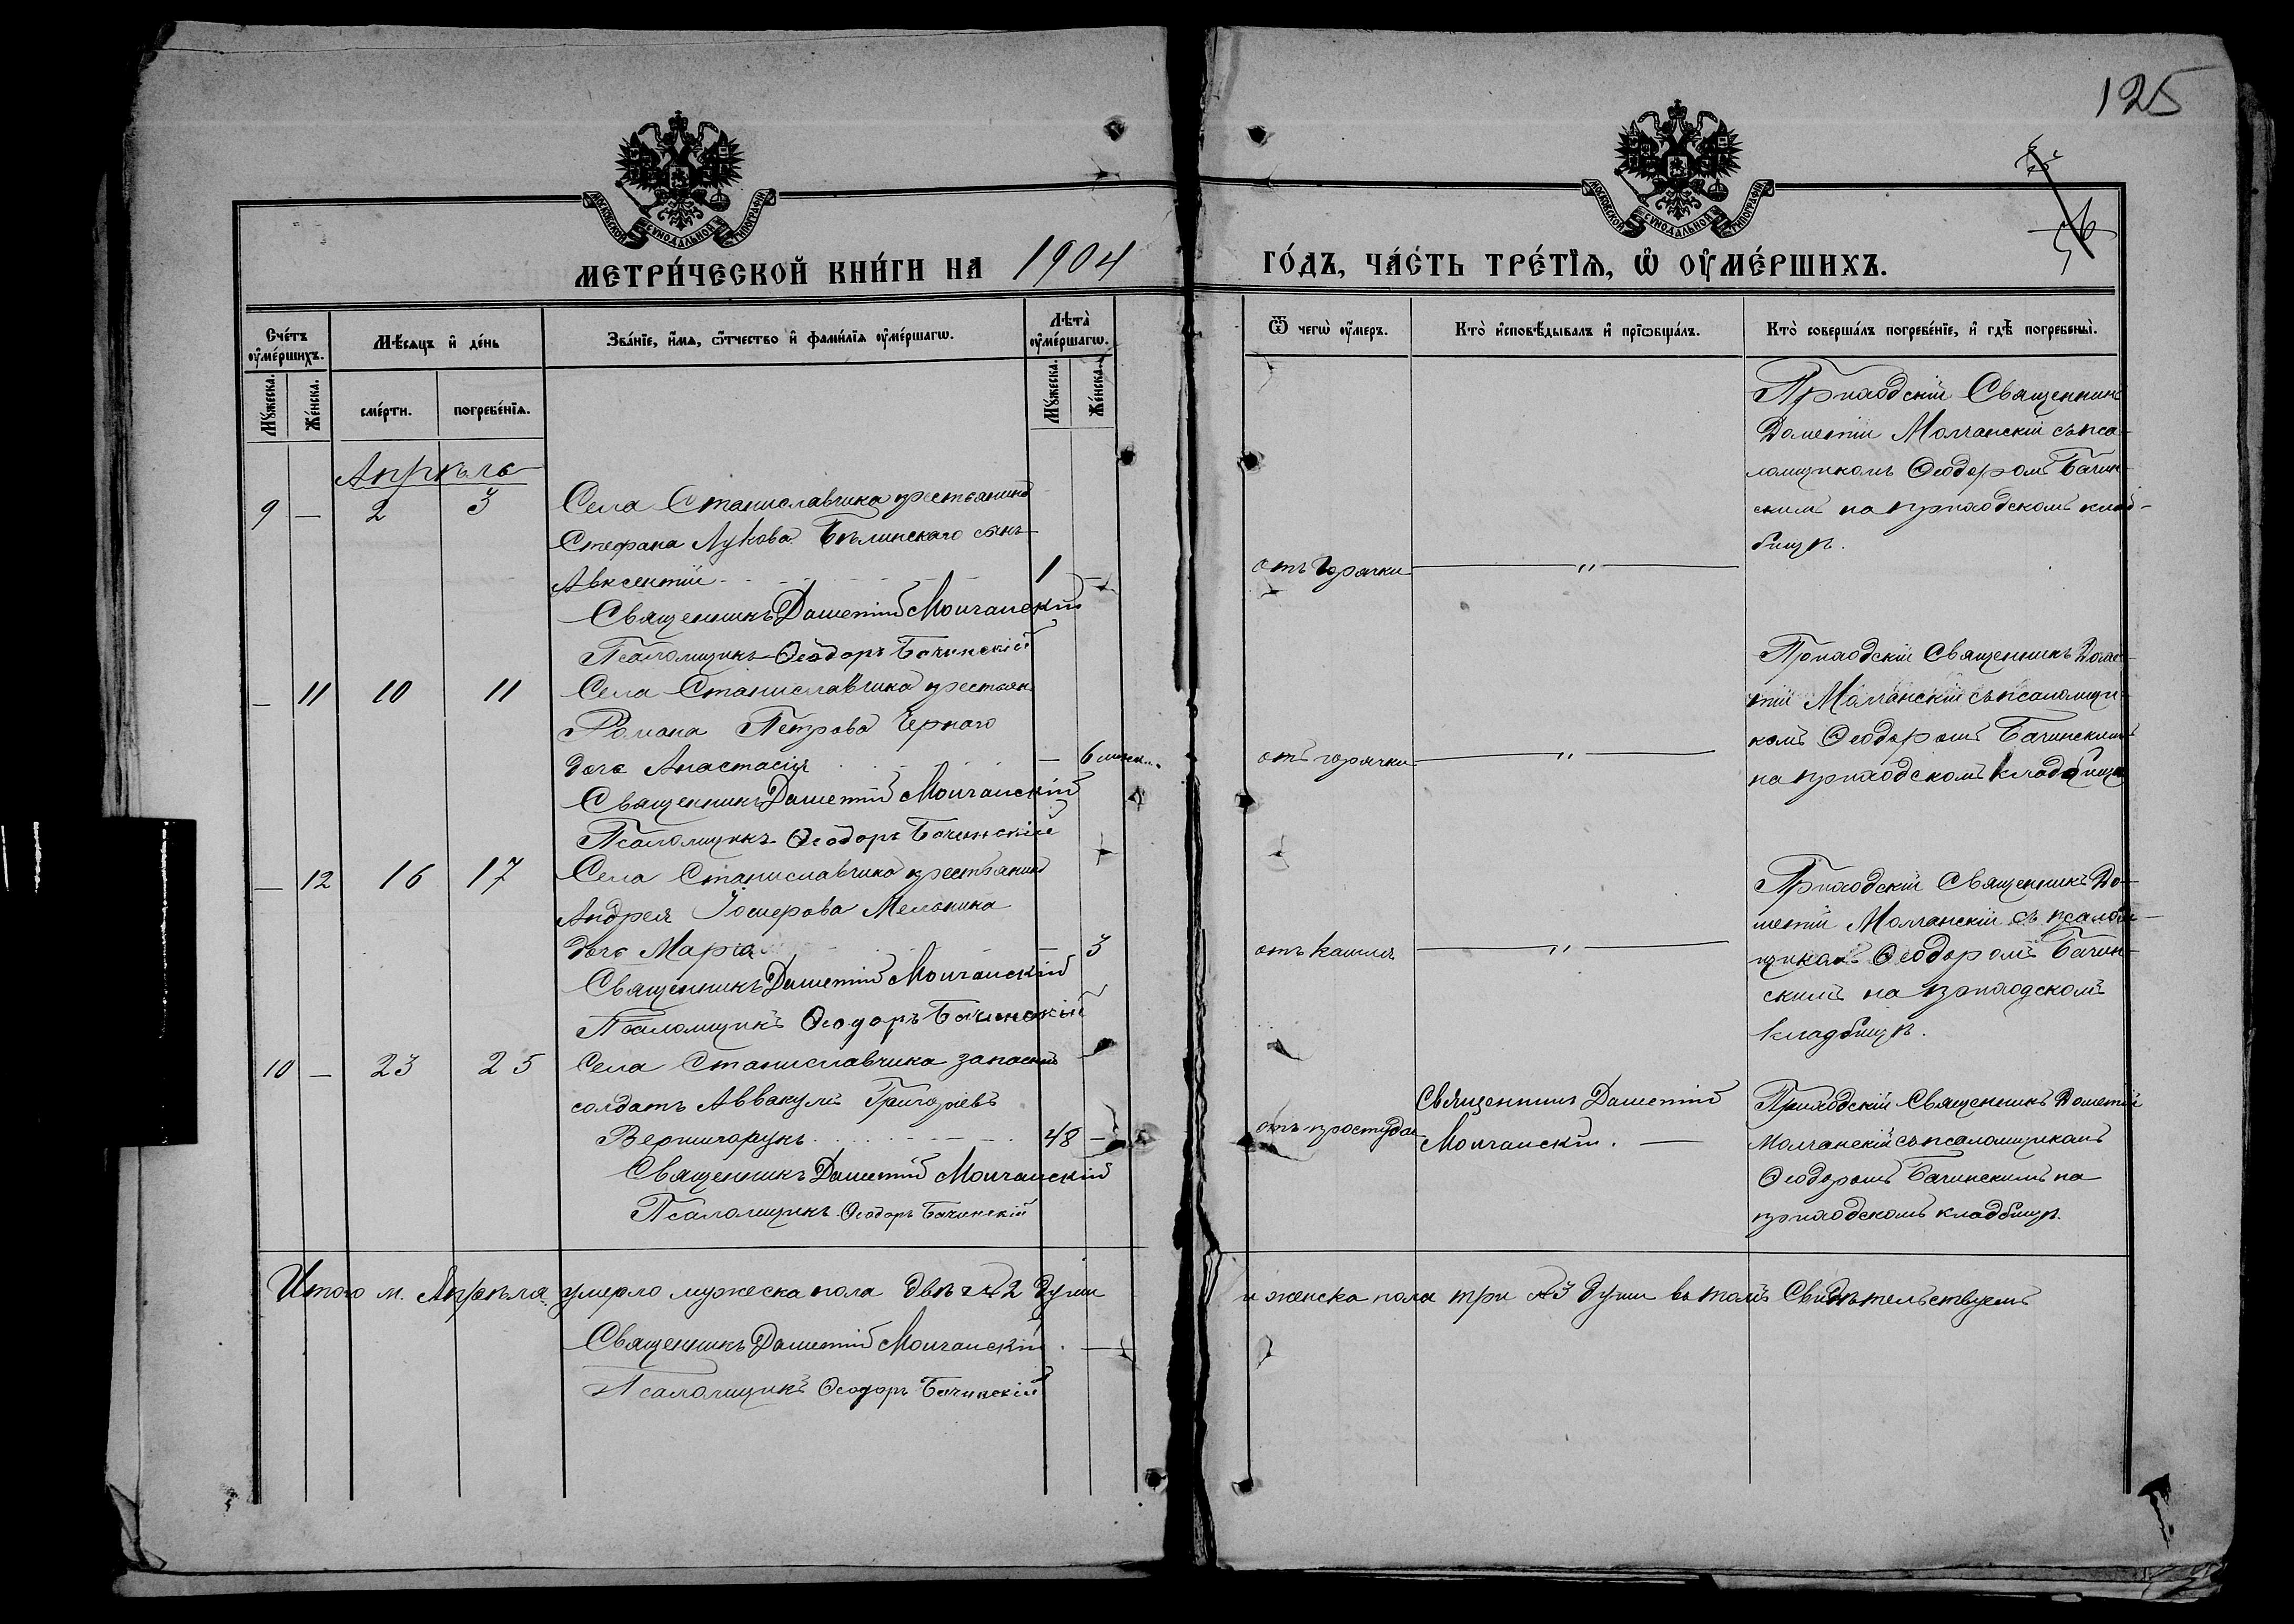 125
МОСКОВСКОЙ СУНОДАЛЬНОЙ ТИПОГРАФІИ
МОСКОВСКОЙ СУНОДАЛЬНОЙ ТИПОГРАФІИ
МЕТРИ́ЧЕСКОЙ КНИ́ГИ НА 1904
ГО́ДЪ, ЧА́СТЬ ТРЕ́ТІѦ, Ѡ ОУМЕ́РШИХЪ.
Сче́тъ оуме́ршихъ.
Мѣ́сяцъ и де́нь
Зва́ніе, и́мѧ, ѻ́тчество и фами́лїѧ оуме́ршагѡ.
Лѣ́та оуме́ршагѡ.
Му́жеска.
Же́нска.
сме́рти.
погребе́нїѧ.
Му́жеска.
Же́нска.
Ѿ чегѡ̀ оу́меръ.
Кто̀ и҆сповѣ́дывалъ и҆ прїѡбща́лъ.
Кто̀ соверша́лъ погребе́нїе, и҆ гдѣ̀ погребены̀.
Апрѣль
9 — 2 3 Села Станиславчика крестьянина
Стефана Лукова Бѣлинскаго сынъ
Авксентій 1 —
Священникъ Дометій Молчанскій
Псаломщикъ Ѳеодоръ Бачинскій
отъ горячки — „ —
Приходскій Священникъ
Дометій Молчанскій съ пса-
ломщикомъ Ѳеодоромъ Бачин-
скимъ на приходскомъ клад-
бищѣ.
— 11 10 11 Села Станиславчика крестьян.
Романа Петрова Чернаго
дочь Анастасія — 6
Священникъ Дометій Молчанскій
Псаломщикъ Ѳеодоръ Бачинскій
отъ горячки — „ —
Приходскій Священникъ Доме-
тій Молчанскій съ псаломщи-
комъ Ѳеодоромъ Бачинскимъ
на приходскомъ кладбищѣ
— 12 16 17 Села Станиславчика крестьянина
Андрея Мельника
дочь Марѳа — 3
Священникъ Дометій Молчанскій
Псаломщикъ Ѳеодоръ Бачинскій
отъ кашля — „ —
Приходскій Священникъ До-
метій Молчанскій съ псалом-
щикомъ Ѳеодоромъ Бачин-
скимъ на приходскомъ
кладбищѣ.
10 — 23 25 Села Станиславчика запасный
солдатъ Аввакумъ Григоріевъ
Вернигорукъ 48 —
Священникъ Дометій Молчанскій
Псаломщикъ Ѳеодоръ Бачинскій
отъ простуды
Священникъ Дометій
Молчанскій. —
Приходскій Священникъ Дометій
Молчанскій съ псаломщикомъ
Ѳеодоромъ Бачинскимъ на
приходскомъ кладбищѣ.
Итого м. Апрѣля умерло мужеска пола двѣ 2 души
и женска пола три 3 души въ томъ Свидѣтельствуемъ
Священникъ Дометій Молчанскій.
Псаломщикъ Ѳеодоръ Бачинскій